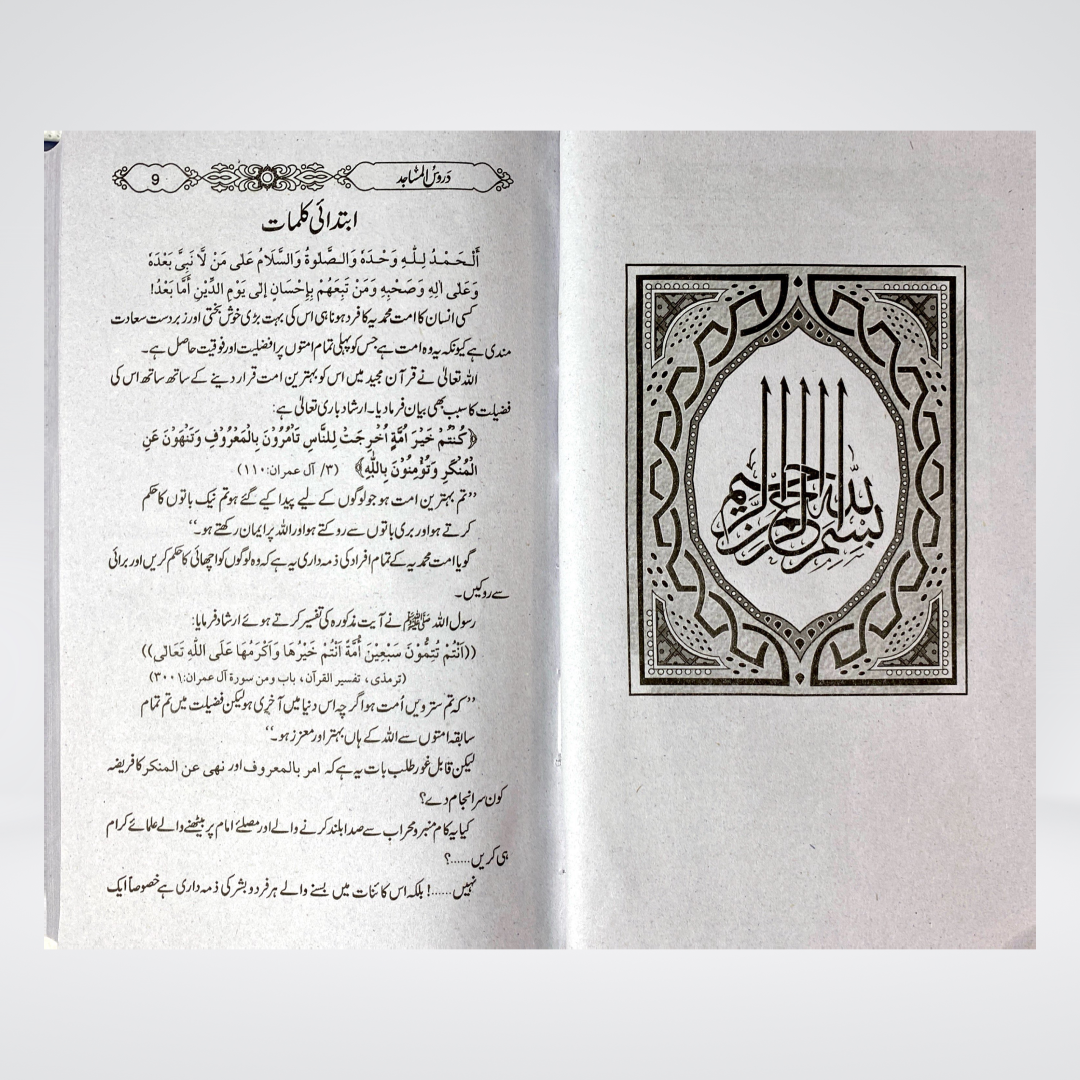 بسم الله الرحمن الرحيم
دروس المساجد
9
ابتدائی کلمات
أَلْحَمْدُ لِلّٰهِ وَحْدَهٗ وَالصَّلٰوةُ وَالسَّلَامُ عَلٰى مَنْ لَّا نَبِيَّ بَعْدَهٗ
وَعَلٰى اٰلِهٖ وَصَحْبِهٖ وَمَنْ تَبِعَهُمْ بِاِحْسَانٍ اِلٰى يَوْمِ الدِّيْنِ أَمَّا بَعْدُ!
کسی انسان کا امت محمدیہ کا فرد ہونا ہی اس کی بہت بڑی خوش بختی اور زبردست سعادت
مندی ہے کیونکہ یہ وہ امت ہے جس کو پہلی تمام امتوں پر افضلیت اور فوقیت حاصل ہے۔
اللہ تعالیٰ نے قرآن مجید میں اس کو بہترین امت قرار دینے کے ساتھ ساتھ اس کی
فضیلت کا سبب بھی بیان فرما دیا۔ ارشاد باری تعالیٰ ہے:
﴿كُنْتُمْ خَيْرَ اُمَّةٍ اُخْرِجَتْ لِلنَّاسِ تَاْمُرُوْنَ بِالْمَعْرُوْفِ وَتَنْهَوْنَ عَنِ
الْمُنْكَرِ وَتُؤْمِنُوْنَ بِاللّٰهِ﴾ (۳/ آل عمران:۱۱۰)
’’تم بہترین امت ہو جو لوگوں کے لیے پیدا کیے گئے ہو تم نیک باتوں کا حکم
کرتے ہو اور بری باتوں سے روکتے ہو اور اللہ پر ایمان رکھتے ہو۔‘‘
گویا امت محمدیہ کے تمام افراد کی ذمہ داری یہ ہے کہ وہ لوگوں کو اچھائی کا حکم کریں اور برائی
سے روکیں۔
رسول اللہ ﷺ نے آیت مذکورہ کی تفسیر کرتے ہوئے ارشاد فرمایا:
((اَنْتُمْ تُتِمُّوْنَ سَبْعِيْنَ أُمَّةً اَنْتُمْ خَيْرُهَا وَاَكْرَمُهَا عَلَى اللّٰهِ تَعَالٰى))
(ترمذی، تفسیر القرآن، باب ومن سورة آل عمران:۳۰۰۱)
’’کہ تم سترویں اُمت ہو اگرچہ اس دنیا میں آخری ہو لیکن فضیلت میں تم تمام
سابقہ امتوں سے اللہ کے ہاں بہتر اور معزز ہو۔‘‘
لیکن قابل غور طلب بات یہ ہے کہ امر بالمعروف اور نهی عن المنکر کا فریضہ
کون سرانجام دے؟
کیا یہ کام منبر و محراب سے صدا بلند کرنے والے اور مصلٰئے امام پر بیٹھنے والے علمائے کرام
ہی کریں......؟
نہیں......! بلکہ اس کائنات میں بسنے والے ہر فرد و بشر کی ذمہ داری ہے خصوصاً ایک